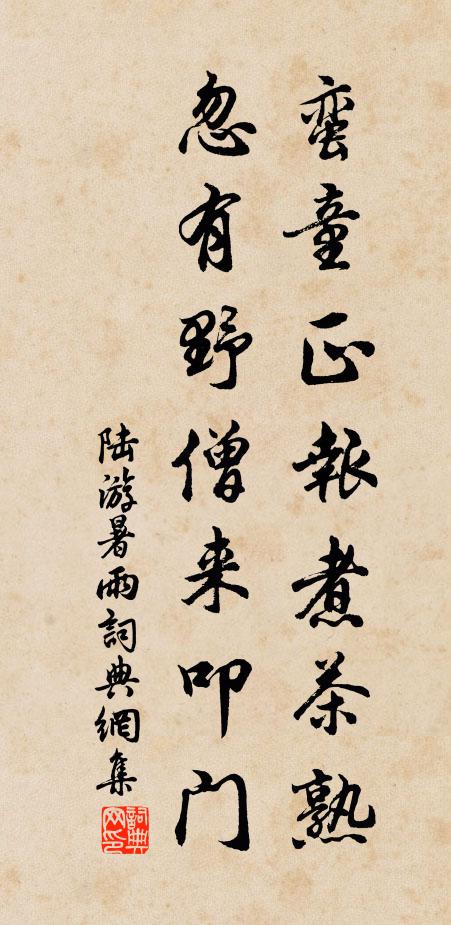 蛮童正報煮茶熟
忽有野僧来叩门
陆游暑雨詞典網集
詞典网印